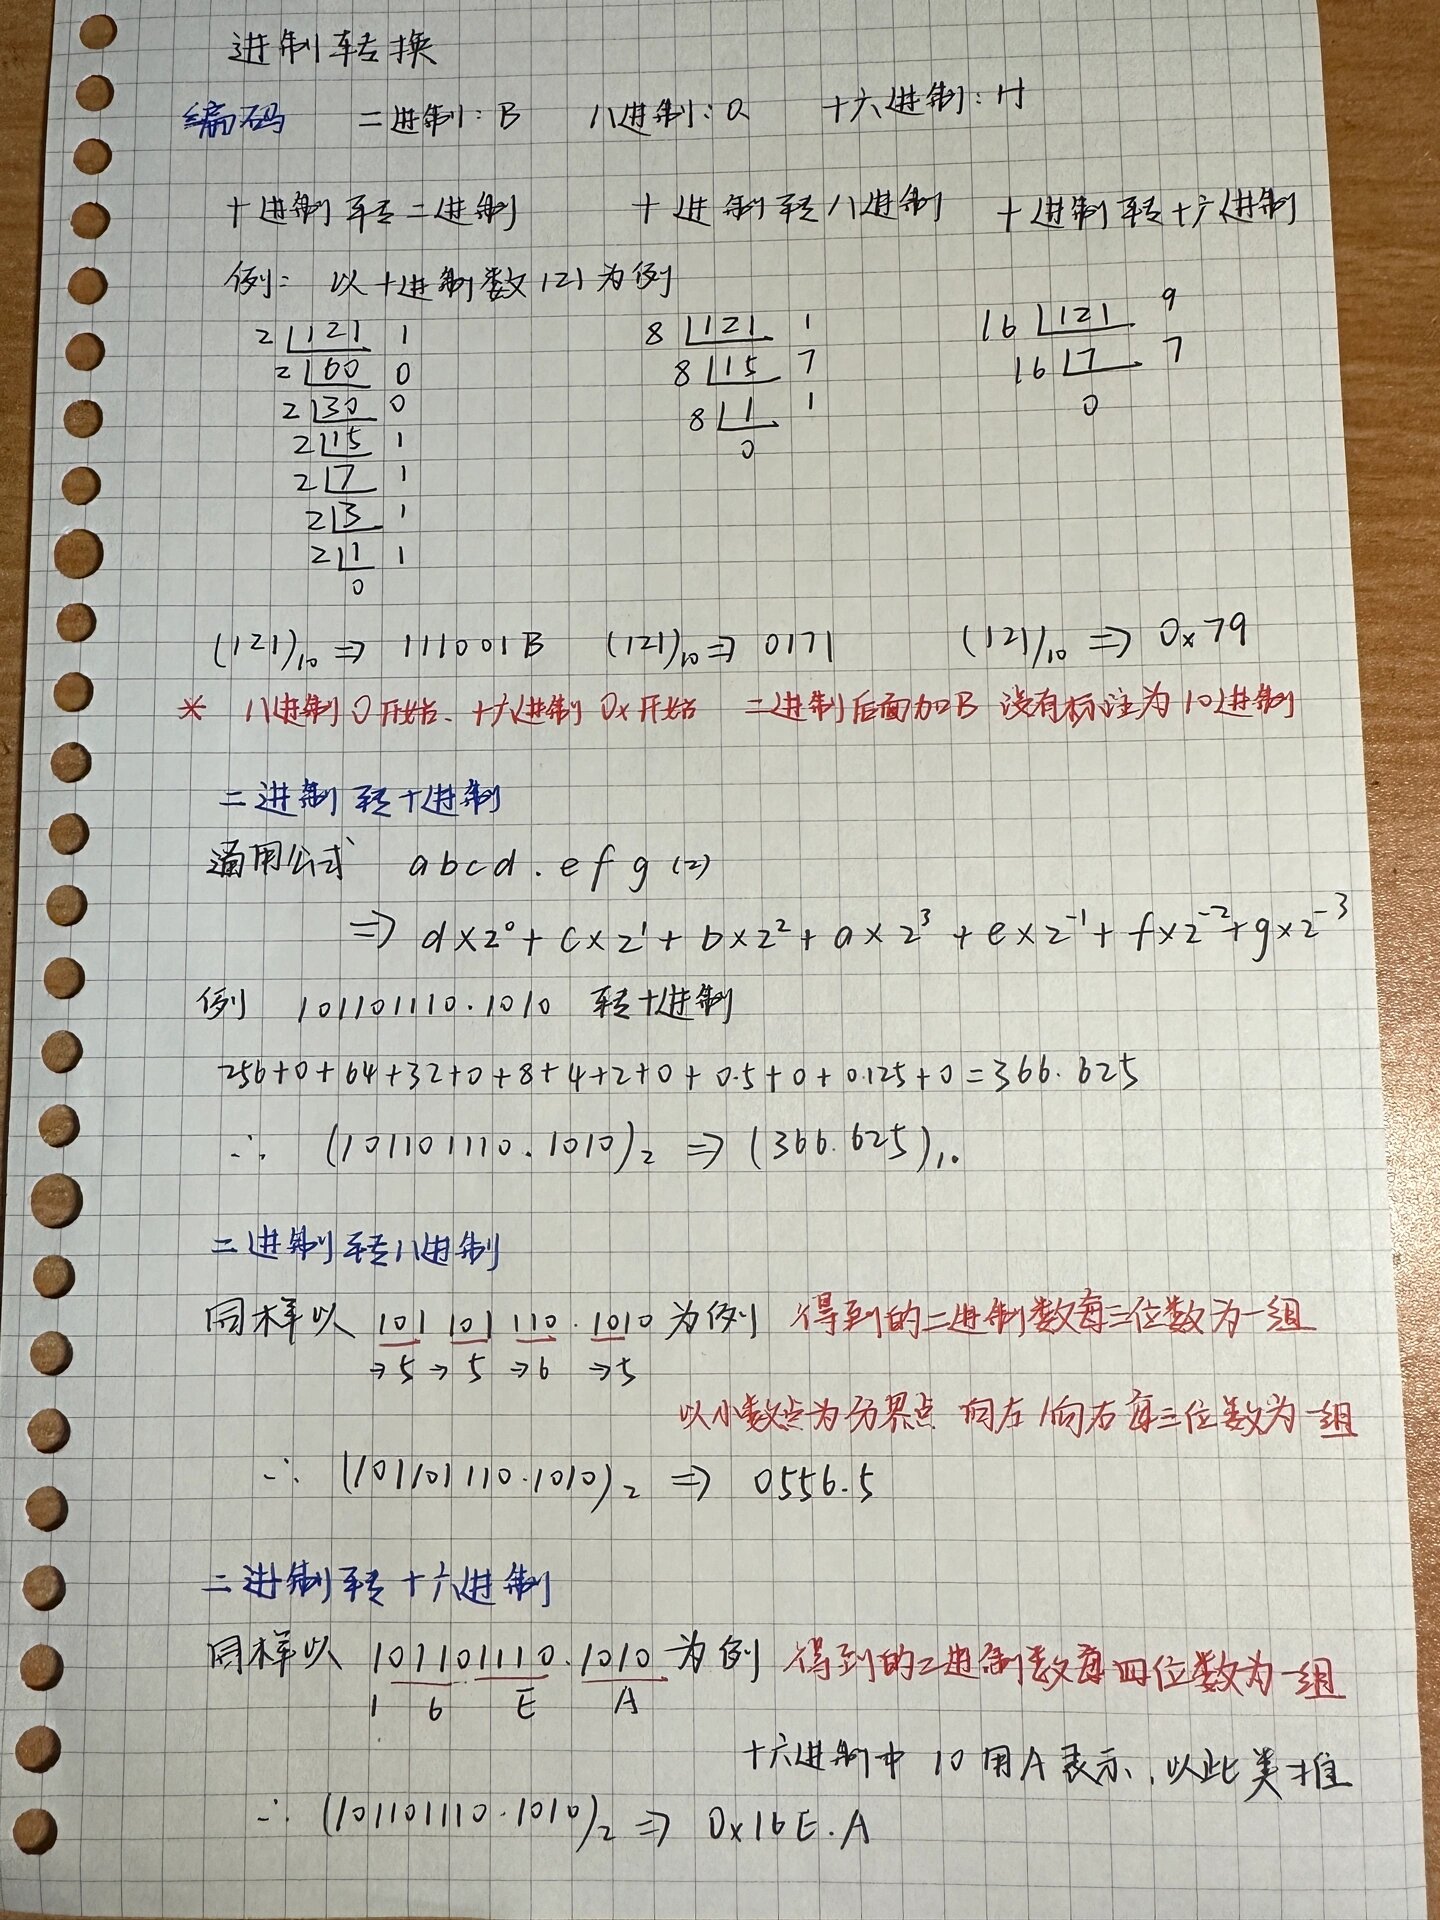 进制转换
编码 二进制：B 八进制：Q 十六进制：H
十进制转二进制 十进制转八进制 十进制转十六进制
例： 以十进制数121为例
2 121 1 8 121 1 16 121 9
2 60 0 8 15 7 16 7 7
2 30 0 8 1 1 0
2 15 1 0
2 7 1
2 3 1
2 1 1
0
(121)₁₀ ⇒ 111001B (121)₁₀ ⇒ 0171 (121)₁₀ ⇒ 0x79
* 八进制0开始、十六进制0x开始 二进制后面加B 没有标注为10进制
二进制转十进制
通用公式 abcd.efg(2)
⇒ d×2⁰+c×2¹+b×2²+a×2³+e×2⁻¹+f×2⁻²+g×2⁻³
例 101101110.1010 转十进制
256+0+64+32+0+8+4+2+0+0.5+0+0.125+0=366.625
∴ (101101110.1010)₂ ⇒ (366.625)₁₀
二进制转八进制
同样以 101 101 110.1010 为例 得到的二进制数每三位数为一组
→5 →5 →6 →5
以小数点为分界点 向左/向右每三位数为一组
∴ (101101110.1010)₂ ⇒ 0556.5
二进制转十六进制
同样以 101101110.1010 为例 得到的二进制数每四位数为一组
1 6 E A
十六进制中 10用A表示，以此类推
∴ (101101110.1010)₂ ⇒ 0x16E.A